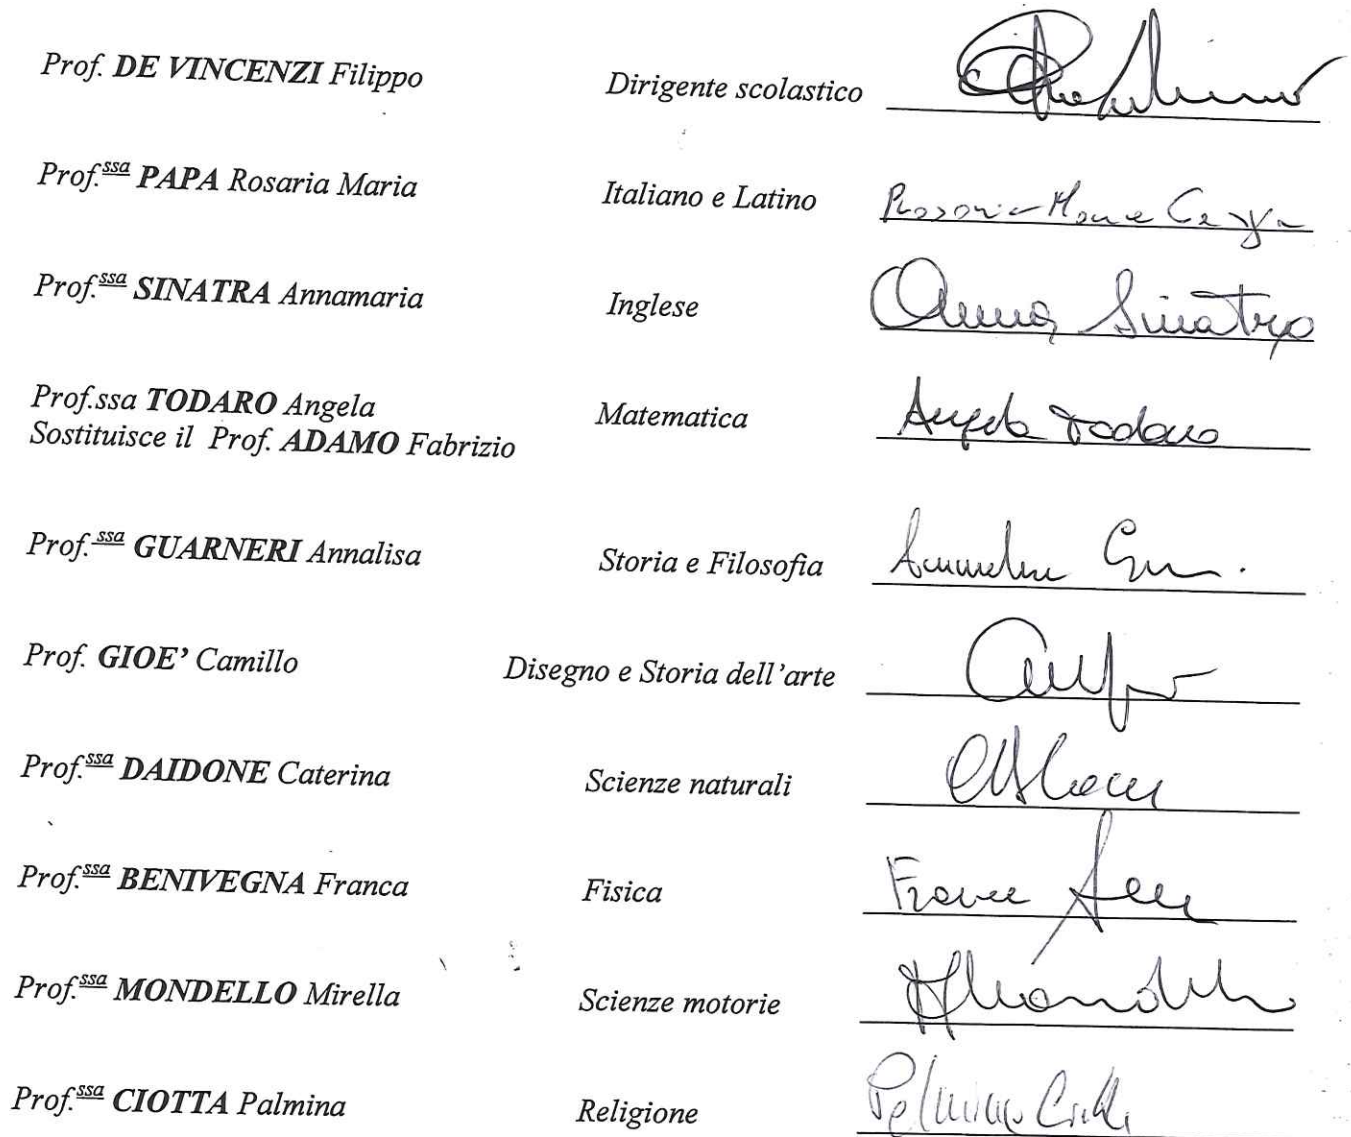 Prof. DE VINCENZI Filippo Dirigente scolastico
Prof.ssa PAPA Rosaria Maria Italiano e Latino Rosaria Maria
Prof.ssa SINATRA Annamaria Inglese Anna Sinatra
Prof.ssa TODARO Angela Matematica Angela Todaro
Sostituisce il Prof. ADAMO Fabrizio
Prof.ssa GUARNERI Annalisa Storia e Filosofia
Prof. GIOE' Camillo Disegno e Storia dell'arte
Prof.ssa DAIDONE Caterina Scienze naturali
Prof.ssa BENIVEGNA Franca Fisica Franca
Prof.ssa MONDELLO Mirella Scienze motorie
Prof.ssa CIOTTA Palmina Religione Palmina Ciotta